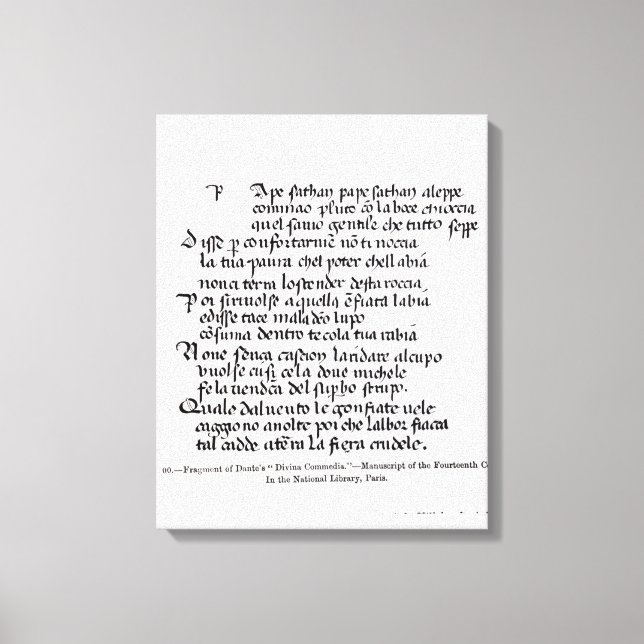 P Ape sathan pape sathan aleppe
cominao pluto cõ la boce chioccia
quel savio gentile che tutto seppe
Disse p confortarmE nõ ti noccia
la tua paura chel poter chell abiá
non ci terra lo scender desta roccia
Poi si rivolse a quella ēfiata labiá
e disse tace maladeō lupo
cõsuma dentro te co la tua rabiá
None sença cascion landare al cupo
vuolse cusi ce la dove michele
fe la vendcā del supbo strupo.
Quale dal vento le gonfiate vele
caggiono avolte poi che lalbor fiacca
tal cadde a terra la fiera crudele.
00.—Fragment of Dante's " Divina Commedia."—Manuscript of the Fourteenth C
In the National Library, Paris.